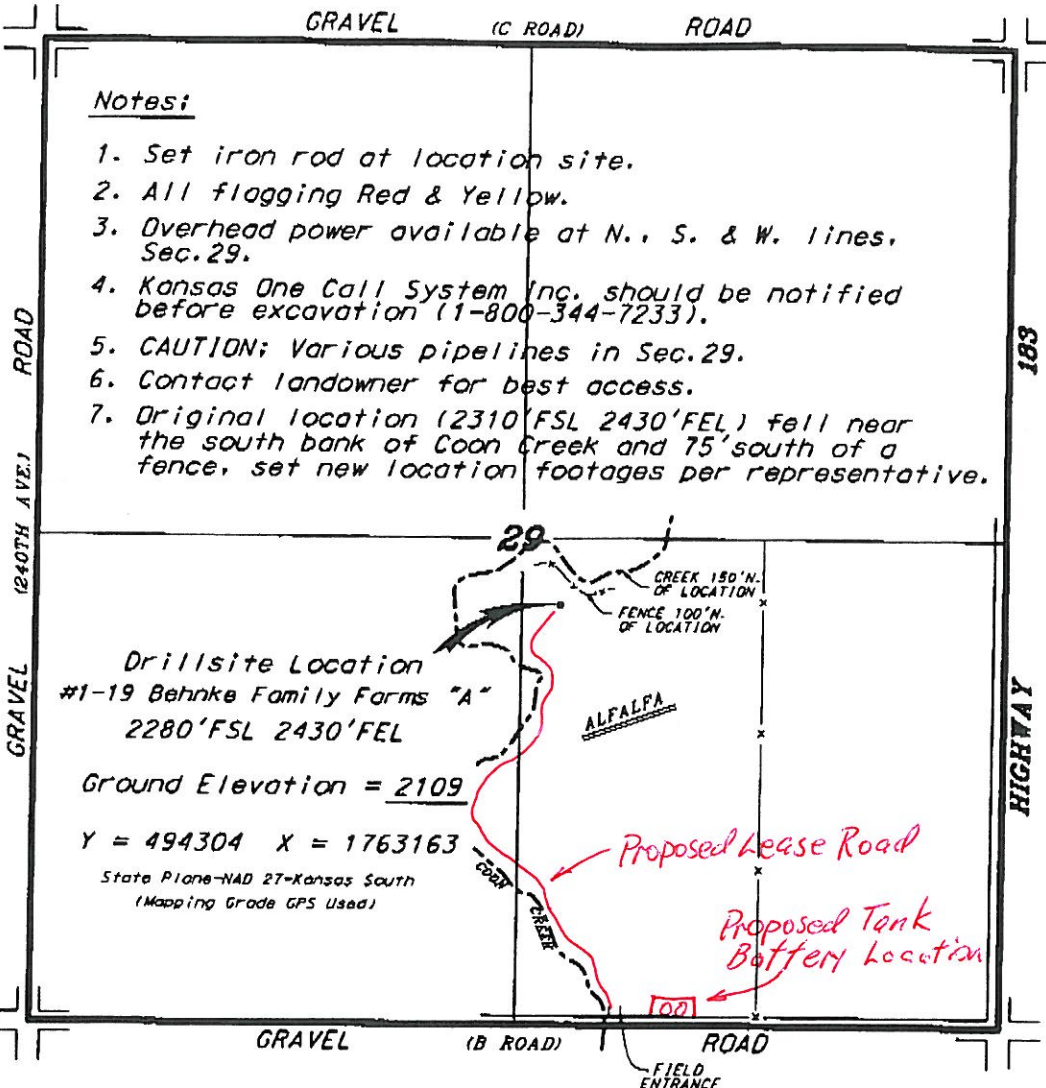 GRAVEL (C ROAD) ROAD
Notes:
1. Set iron rod at location site.
2. All flagging Red & Yellow.
3. Overhead power available at N., S. & W. lines,
Sec.29.
4. Kansas One Call System Inc. should be notified
before excavation (1-800-344-7233).
5. CAUTION: Various pipelines in Sec.29.
6. Contact landowner for best access.
7. Original location (2310'FSL 2430'FEL) fell near
the south bank of Coon Creek and 75'south of a
fence, set new location footages per representative.
GRAVEL (240TH AVE.) ROAD
HIGHWAY 183
29
CREEK 150'N.
OF LOCATION
FENCE 100'N.
OF LOCATION
Drillsite Location
#1-19 Behnke Family Farms "A"
2280'FSL 2430'FEL
ALFALFA
Ground Elevation = 2109
Y = 494304 X = 1763163
State Plane-NAD 27-Kansas South
(Mapping Grade GPS Used)
COON
CREEK
Proposed Lease Road
Proposed Tank
Battery Location
GRAVEL (B ROAD) ROAD
FIELD
ENTRANCE